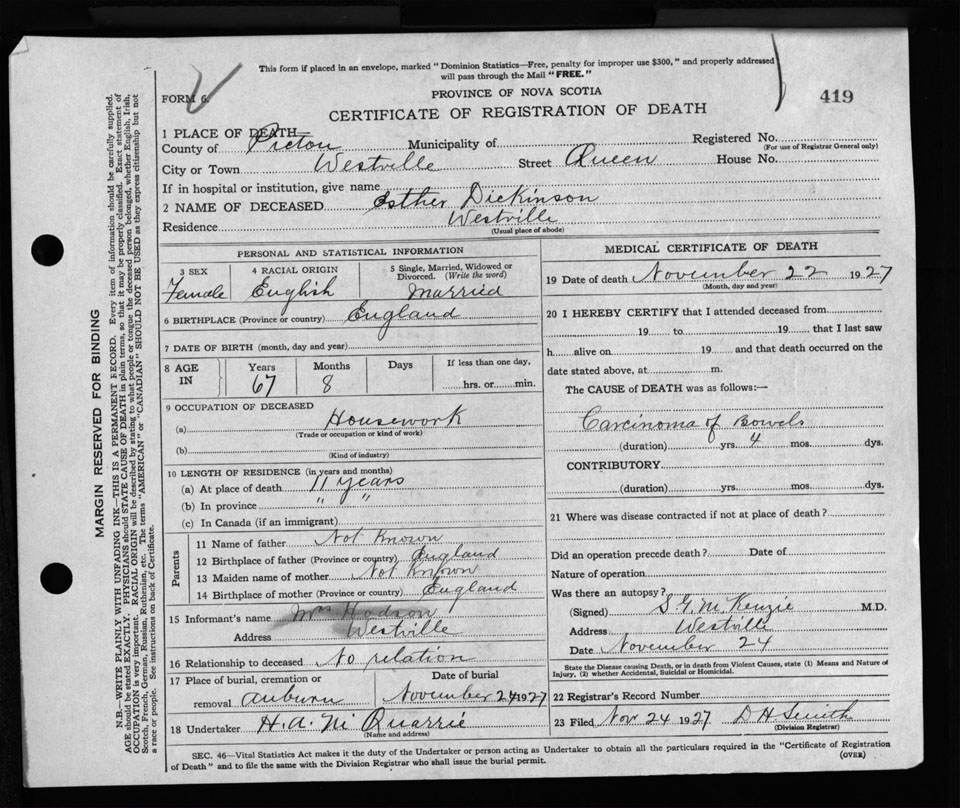 This form if placed in an envelope, marked "Dominion Statistics—Free, penalty for improper use $300," and properly addressed
will pass through the Mail "FREE."
FORM 6.
PROVINCE OF NOVA SCOTIA
419
CERTIFICATE OF REGISTRATION OF DEATH
1 PLACE OF DEATH—
County of Picton Municipality of Registered No.
(For use of Registrar General only)
City or Town Westville Street Queen House No.
If in hospital or institution, give name
2 NAME OF DECEASED Esther Dickinson
Residence Westville
(Usual place of abode)
PERSONAL AND STATISTICAL INFORMATION
3 SEX 4 RACIAL ORIGIN 5 Single, Married, Widowed or Divorced. (Write the word)
Female English Married
6 BIRTHPLACE (Province or country) England
7 DATE OF BIRTH (month, day and year)
8 AGE IN Years Months Days If less than one day,
67 8 hrs. or min.
9 OCCUPATION OF DECEASED
(a) Housework
(Trade or occupation or kind of work)
(b)
(Kind of industry)
10 LENGTH OF RESIDENCE (in years and months)
(a) At place of death 11 years
(b) In province " "
(c) In Canada (if an immigrant)
Parents
11 Name of father Not Known
12 Birthplace of father (Province or country) England
13 Maiden name of mother Not Known
14 Birthplace of mother (Province or country) England
15 Informant's name Mrs Hodson
Address Westville
16 Relationship to deceased No relation
17 Place of burial, cremation or Date of burial
removal Auburn November 24 1927
18 Undertaker H. A. Mc Quarrie
(Name and address)
MEDICAL CERTIFICATE OF DEATH
19 Date of death November 22 1927
(Month, day and year)
20 I HEREBY CERTIFY that I attended deceased from
19 to 19 that I last saw
h alive on 19 and that death occurred on the
date stated above, at m.
The CAUSE of DEATH was as follows:—
Carcinoma of Bowels
(duration) yrs. 4 mos. dys.
CONTRIBUTORY
(duration) yrs. mos. dys.
21 Where was disease contracted if not at place of death?
Did an operation precede death? Date of
Nature of operation
Was there an autopsy?
(Signed) S. G. McKenzie M.D.
Address Westville
Date November 24
State the Disease causing Death, or in death from Violent Causes, state (1) Means and Nature of
Injury, (2) whether Accidental, Suicidal or Homicidal.
22 Registrar's Record Number
23 Filed Nov 24 1927 D H Smith
(Division Registrar)
SEC. 46—Vital Statistics Act makes it the duty of the Undertaker or person acting as Undertaker to obtain all the particulars required in the "Certificate of Registration
of Death" and to file the same with the Division Registrar who shall issue the burial permit.
(OVER)
MARGIN RESERVED FOR BINDING
N.B.—WRITE PLAINLY WITH UNFADING INK—THIS IS A PERMANENT RECORD. Every item of information should be carefully supplied.
AGE should be stated EXACTLY. PHYSICIANS should STATE CAUSE OF DEATH in plain terms, so that it may be properly classified. Exact statement of
OCCUPATION is very important. RACIAL ORIGIN will be described by stating to what people or tongue the deceased person belonged, whether English, Irish,
Scotch, French, German, Russian, Ruthenian, etc. The terms "AMERICAN" or "CANADIAN" SHOULD NOT BE USED as they express citizenship but not
a race or people. See instructions on back of Certificate.